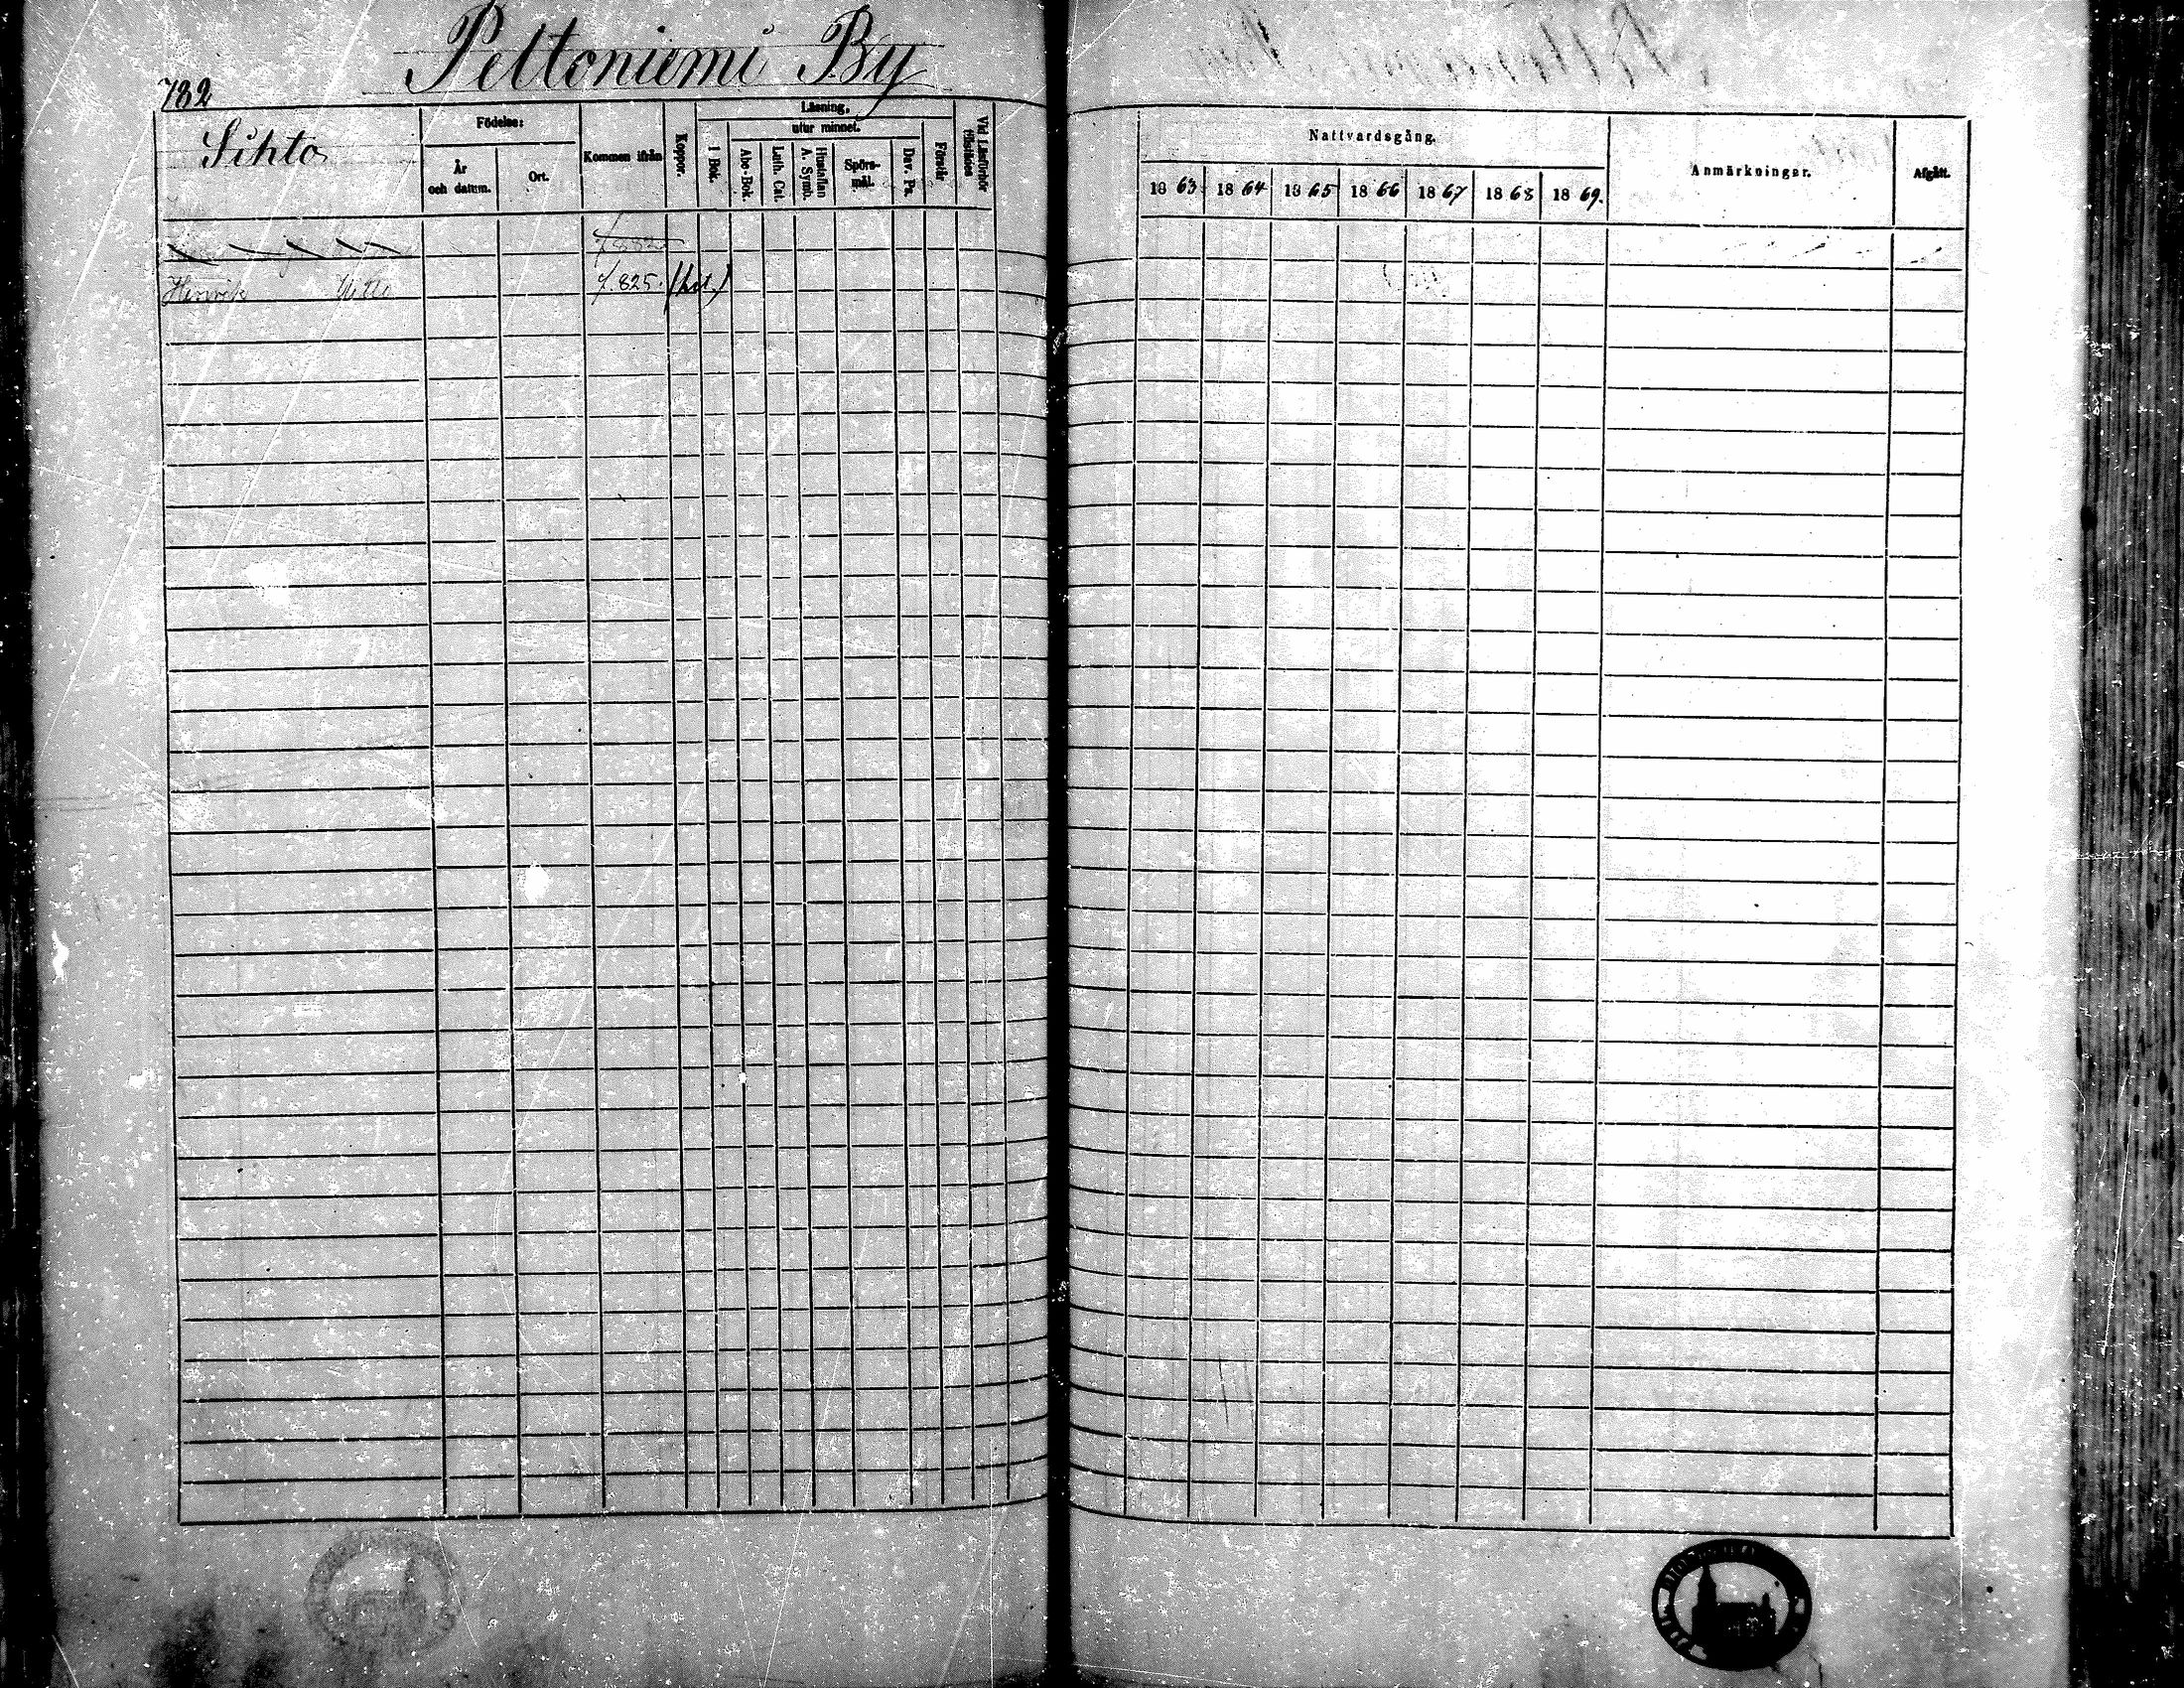 Peltoniemi By
782
Sihto
Födelse:
År
och datum.
Ort.
Kommen ifrån
Koppor.
Läsning,
I Bok.
utur minnet.
Abc-Bok.
Luth. Cat.
Hustaflan
A. Symb.
Spörs-
mål.
Dav. Ps.
Förstår
Vid Läsförhör
tillstädes
Nattvardsgång.
1863. 1864 1865 1866 1867 1868 1869.
Anmärkningar.
Afgått.
Henrik
825.